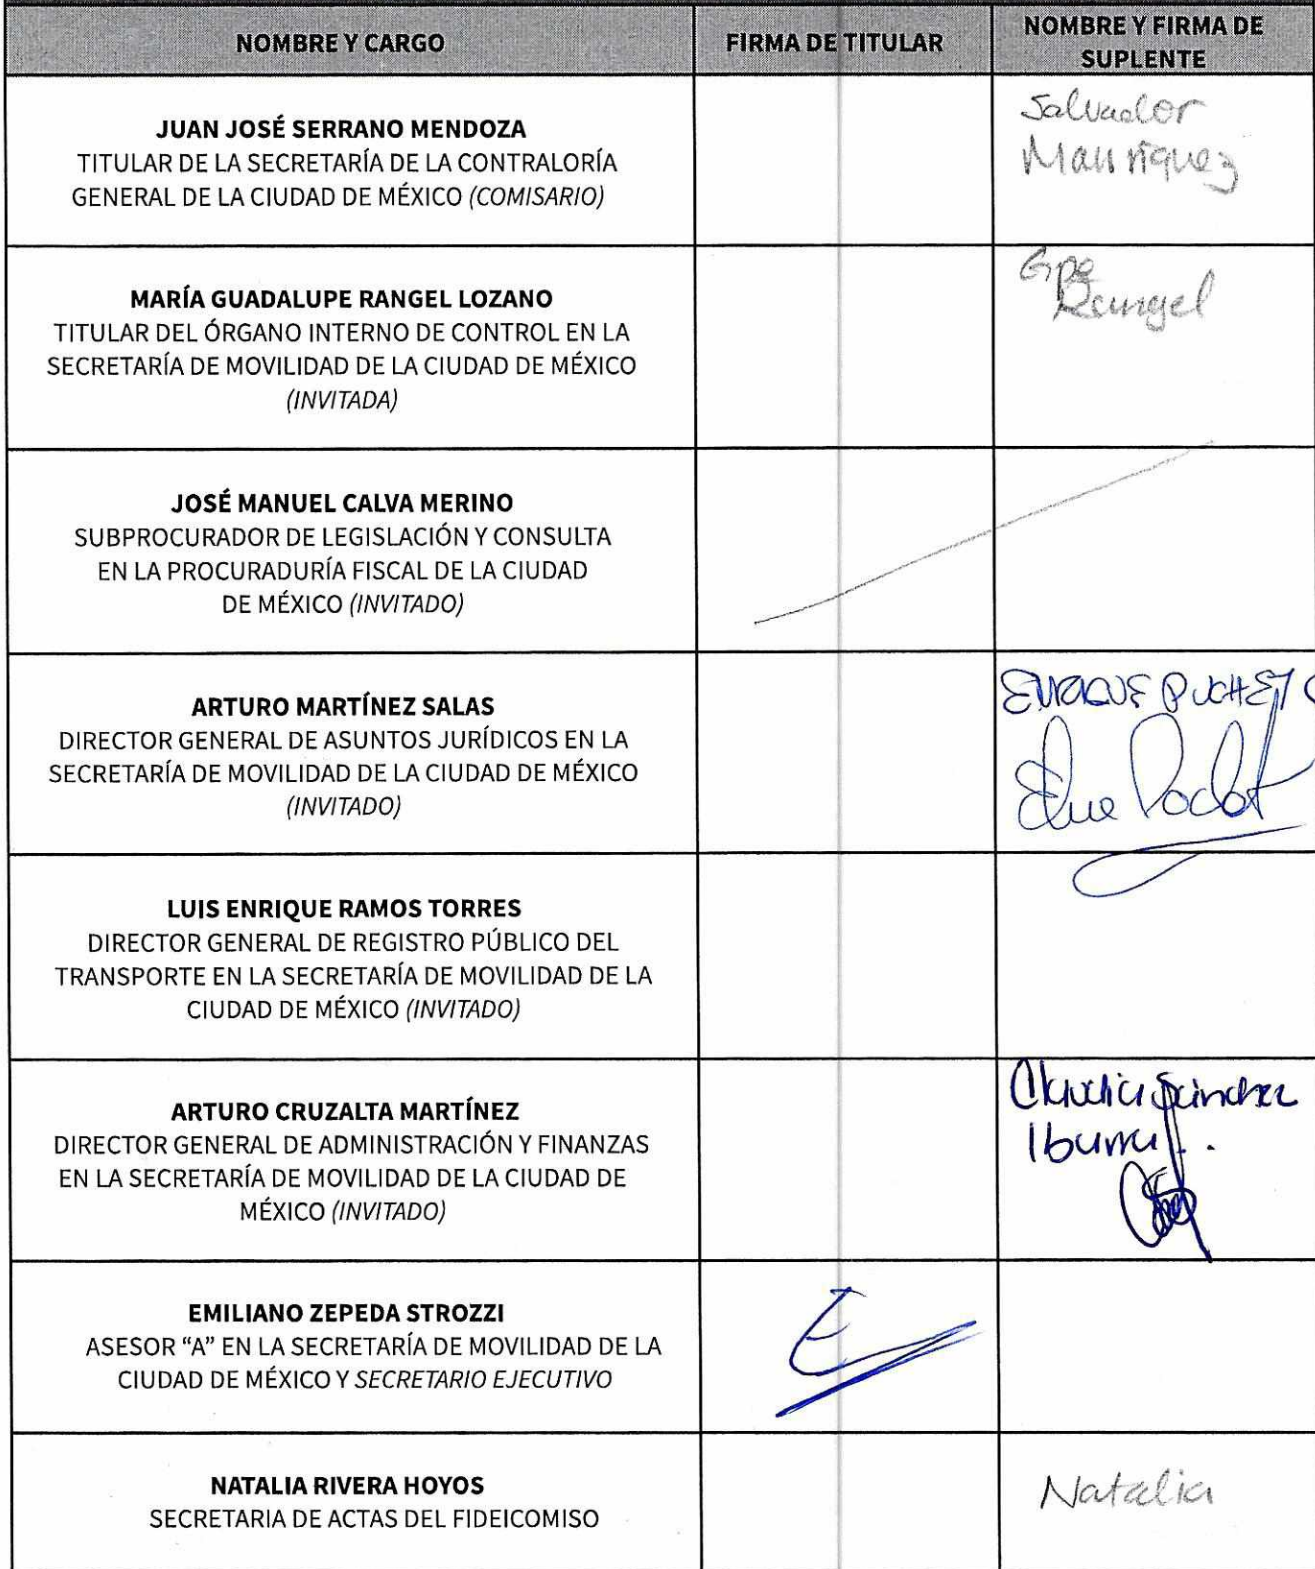 NOMBRE Y CARGO
FIRMA DE TITULAR
NOMBRE Y FIRMA DE
SUPLENTE
JUAN JOSÉ SERRANO MENDOZA
TITULAR DE LA SECRETARÍA DE LA CONTRALORÍA
GENERAL DE LA CIUDAD DE MÉXICO (COMISARIO)
Salvador
Manriquez
MARÍA GUADALUPE RANGEL LOZANO
TITULAR DEL ÓRGANO INTERNO DE CONTROL EN LA
SECRETARÍA DE MOVILIDAD DE LA CIUDAD DE MÉXICO
(INVITADA)
Gpe
Rangel
JOSÉ MANUEL CALVA MERINO
SUBPROCURADOR DE LEGISLACIÓN Y CONSULTA
EN LA PROCURADURÍA FISCAL DE LA CIUDAD
DE MÉXICO (INVITADO)
ARTURO MARTÍNEZ SALAS
DIRECTOR GENERAL DE ASUNTOS JURÍDICOS EN LA
SECRETARÍA DE MOVILIDAD DE LA CIUDAD DE MÉXICO
(INVITADO)
ENRIQUE PUCHET C
LUIS ENRIQUE RAMOS TORRES
DIRECTOR GENERAL DE REGISTRO PÚBLICO DEL
TRANSPORTE EN LA SECRETARÍA DE MOVILIDAD DE LA
CIUDAD DE MÉXICO (INVITADO)
ARTURO CRUZALTA MARTÍNEZ
DIRECTOR GENERAL DE ADMINISTRACIÓN Y FINANZAS
EN LA SECRETARÍA DE MOVILIDAD DE LA CIUDAD DE
MÉXICO (INVITADO)
Claudia Sánchez
Ibarra.
EMILIANO ZEPEDA STROZZI
ASESOR “A” EN LA SECRETARÍA DE MOVILIDAD DE LA
CIUDAD DE MÉXICO Y SECRETARIO EJECUTIVO
NATALIA RIVERA HOYOS
SECRETARIA DE ACTAS DEL FIDEICOMISO
Natalia